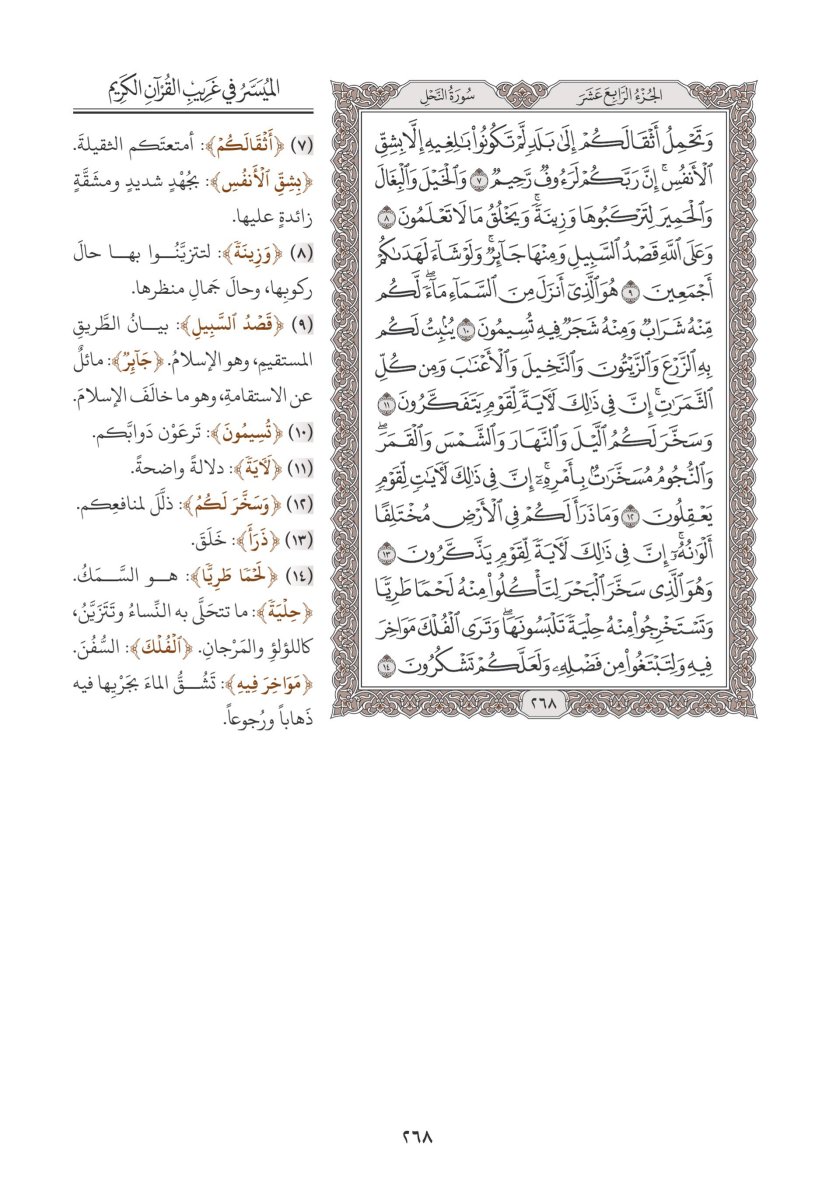 الجُزْءُ الرَّابِعَ عَشَرَ
سُورَةُ النَّحْلِ
وَتَحْمِلُ أَثْقَالَكُمْ إِلَىٰ بَلَدٍ لَّمْ تَكُونُوا۟ بَٰلِغِيهِ إِلَّا بِشِقِّ
ٱلْأَنفُسِ ۚ إِنَّ رَبَّكُمْ لَرَءُوفٌ رَّحِيمٌ ٧ وَٱلْخَيْلَ وَٱلْبِغَالَ
وَٱلْحَمِيرَ لِتَرْكَبُوهَا وَزِينَةً ۚ وَيَخْلُقُ مَا لَا تَعْلَمُونَ ٨
وَعَلَى ٱللَّهِ قَصْدُ ٱلسَّبِيلِ وَمِنْهَا جَآئِرٌ ۚ وَلَوْ شَآءَ لَهَدَىٰكُمْ
أَجْمَعِينَ ٩ هُوَ ٱلَّذِىٓ أَنزَلَ مِنَ ٱلسَّمَآءِ مَآءً ۖ لَّكُم
مِّنْهُ شَرَابٌ وَمِنْهُ شَجَرٌ فِيهِ تُسِيمُونَ ١٠ يُنۢبِتُ لَكُم
بِهِ ٱلزَّرْعَ وَٱلزَّيْتُونَ وَٱلنَّخِيلَ وَٱلْأَعْنَٰبَ وَمِن كُلِّ
ٱلثَّمَرَٰتِ ۗ إِنَّ فِى ذَٰلِكَ لَءَايَةً لِّقَوْمٍ يَتَفَكَّرُونَ ١١
وَسَخَّرَ لَكُمُ ٱلَّيْلَ وَٱلنَّهَارَ وَٱلشَّمْسَ وَٱلْقَمَرَ ۖ
وَٱلنُّجُومُ مُسَخَّرَٰتٌۢ بِأَمْرِهِۦٓ ۗ إِنَّ فِى ذَٰلِكَ لَءَايَٰتٍ لِّقَوْمٍ
يَعْقِلُونَ ١٢ وَمَا ذَرَأَ لَكُمْ فِى ٱلْأَرْضِ مُخْتَلِفًا
أَلْوَٰنُهُۥٓ ۗ إِنَّ فِى ذَٰلِكَ لَءَايَةً لِّقَوْمٍ يَذَّكَّرُونَ ١٣
وَهُوَ ٱلَّذِى سَخَّرَ ٱلْبَحْرَ لِتَأْكُلُوا۟ مِنْهُ لَحْمًا طَرِيًّا
وَتَسْتَخْرِجُوا۟ مِنْهُ حِلْيَةً تَلْبَسُونَهَا ۖ وَتَرَى ٱلْفُلْكَ مَوَاخِرَ
فِيهِ وَلِتَبْتَغُوا۟ مِن فَضْلِهِۦ وَلَعَلَّكُمْ تَشْكُرُونَ ١٤
٢٦٨
الميُسَّرُ في غَرِيبِ القُرْآنِ الكَرِيمِ
(٧) ﴿أَثْقَالَكُمْ﴾: أمتعتَكم الثقيلةَ.
﴿بِشِقِّ ٱلْأَنفُسِ﴾: بجُهْدٍ شديدٍ ومشَقَّةٍ
زائدةٍ عليها.
(٨) ﴿وَزِينَةً﴾: لتتزيَّنُوا بها حالَ
ركوبِها، وحالَ جَمالِ منظرها.
(٩) ﴿قَصْدُ ٱلسَّبِيلِ﴾: بيانُ الطَّريقِ
المستقيمِ، وهو الإسلامُ. ﴿جَآئِرٌ﴾: مائلٌ
عن الاستقامةِ، وهو ما خالَفَ الإسلامَ.
(١٠) ﴿تُسِيمُونَ﴾: تَرعَوْن دَوابَّكم.
(١١) ﴿لَءَايَةً﴾: دلالةً واضحةً.
(١٢) ﴿وَسَخَّرَ لَكُمُ﴾: ذلَّلَ لمنافعِكم.
(١٣) ﴿ذَرَأَ﴾: خَلَقَ.
(١٤) ﴿لَحْمًا طَرِيًّا﴾: هو السَّمَكُ.
﴿حِلْيَةً﴾: ما تتحَلَّى به النِّساءُ وتَتَزَيَّنُ،
كاللؤلؤِ والمَرْجانِ. ﴿ٱلْفُلْكَ﴾: السُّفُنَ.
﴿مَوَاخِرَ فِيهِ﴾: تَشُقُّ الماءَ بجَرْيِها فيه
ذَهاباً ورُجوعاً.
٢٦٨